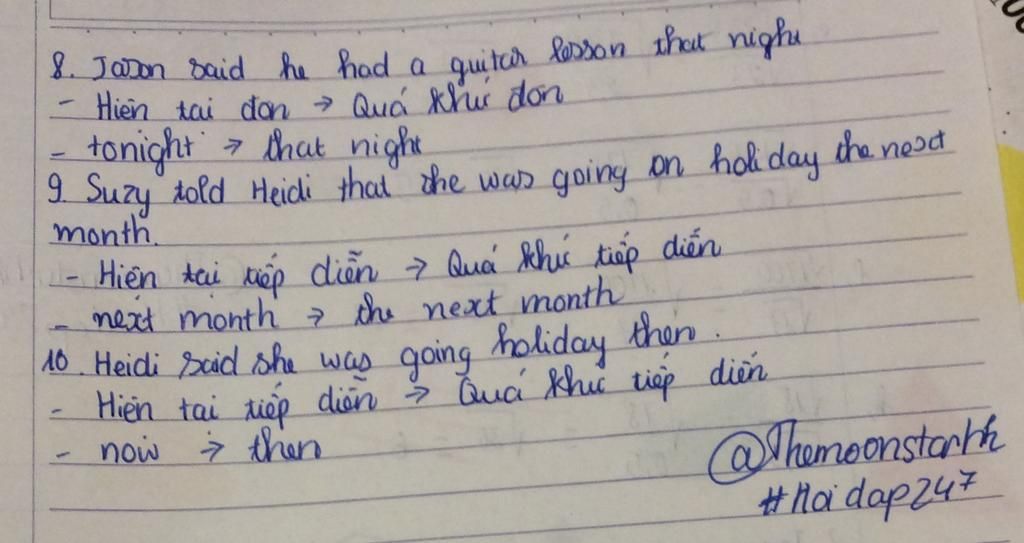 8. Jason said he had a guitar lesson that night
- Hiện tại đơn → Quá khứ đơn
- tonight → that night
9. Suzy told Heidi that she was going on holiday the next
month.
- Hiện tại tiếp diễn → Quá khứ tiếp diễn
- next month → the next month
10. Heidi said she was going holiday then.
- Hiện tại tiếp diễn → Quá khứ tiếp diễn
- now → then
@Themoonstarhh
#Hoidap247